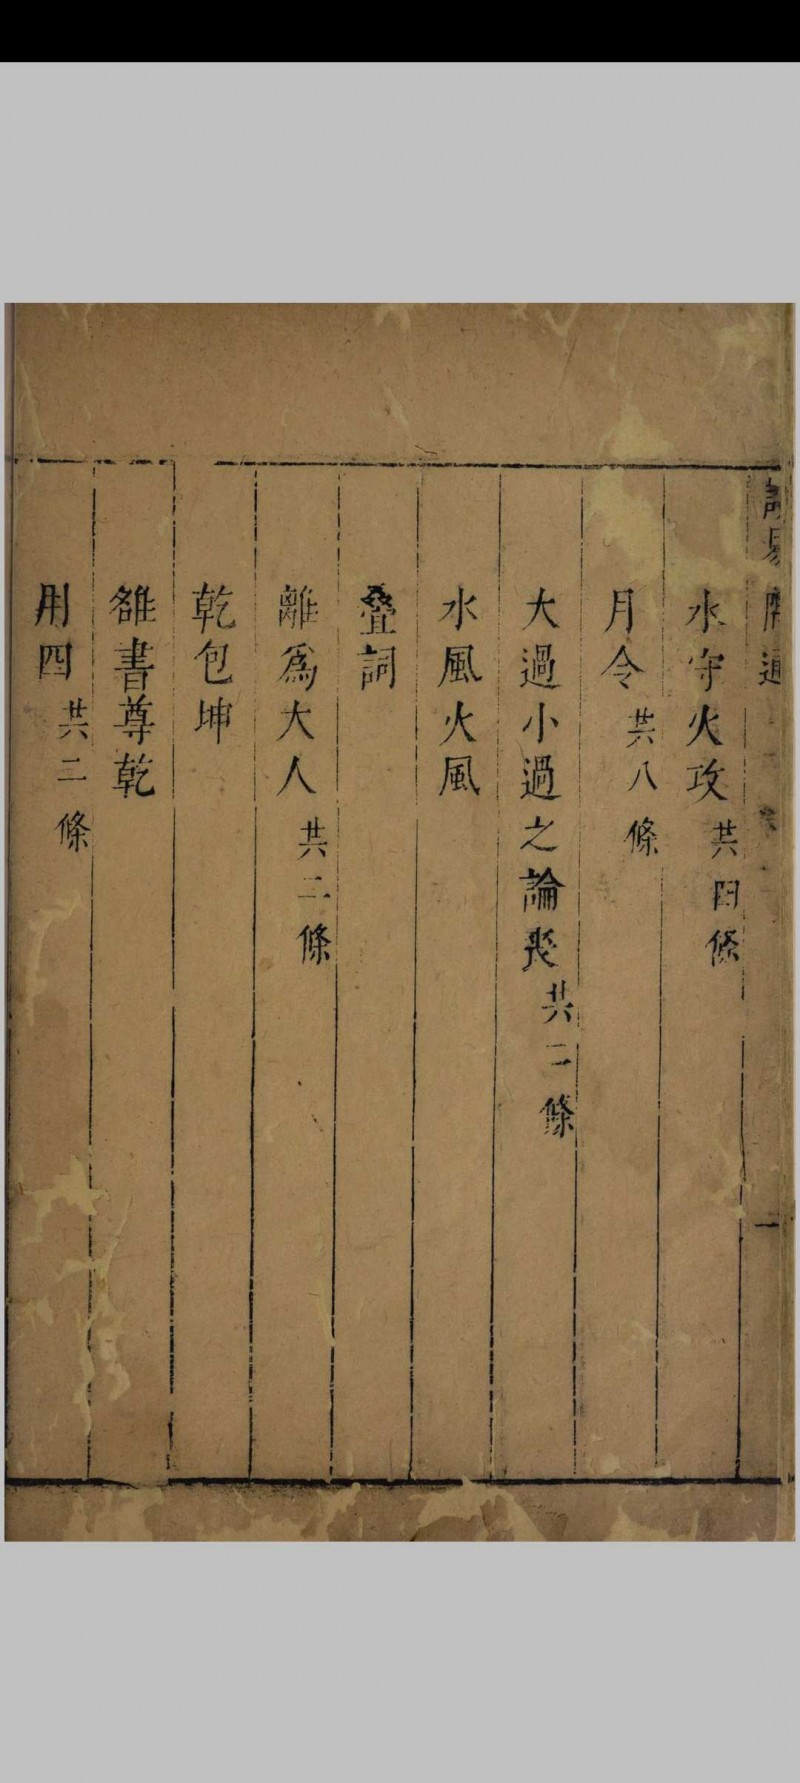 水守火攻 共四條
月令 共八條
大過小過之論喪 共二條
水風火風
疊詞
離爲大人 共二條
乾包坤
雒書尊乾
用四 共二條